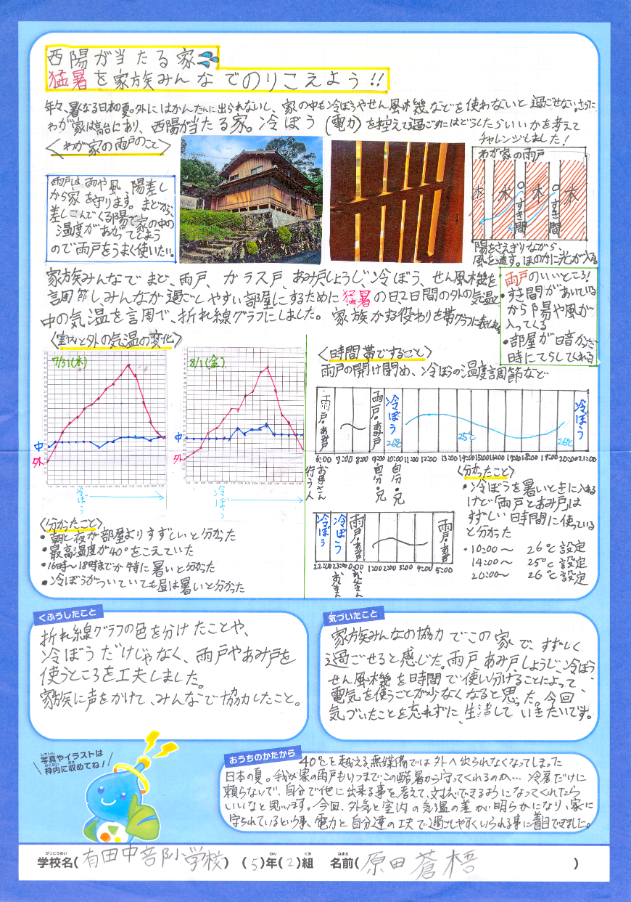 西陽が当たる家
猛暑を家族みんなでのりこえよう!!
年々、暑くなる日本の夏。外にはかんたんに出られないし、家の中も冷ぼうやせん風機などを使わないと過ごせない。さらに
わが家は高台にあり、西陽が当たる家。冷ぼう(電力)を控えて過ごすためにはどうしたらいいかを考えて
チャレンジしました!
〈わが家の雨戸のこと〉
雨戸は、雨や風、陽差し
から家を守ります。まどから
差しこんでくる陽で家の中の
温度があがってしまう
ので雨戸をうまく使いたい。
わが家の雨戸
木
すき間
木
すき間
木
陽をさえぎりながら、
風を通す。ほのかに光が入る
家族みんなで まど、雨戸、ガラス戸、あみ戸、しょうじ、冷ぼう、せん風機を
調節しみんなが過ごしやすい部屋にするために猛暑の日2日間の外の気温と
中の気温を調べ、折れ線グラフにしました。家族がする役わりを帯グラフに表した
雨戸のいいところ!
・すき間があいている
から陽や風が
入ってくる
・部屋が暗かった
時にてらしてくれる
〈室内と外の気温の変化〉
7/31(木)
8/1(金)
中
外
中
外
冷ぼう
冷ぼう
〈時間帯ですること〉
雨戸の開け閉め、冷ぼうの温度調節など
雨戸・あみ戸
雨戸・あみ戸
冷ぼう
26℃
25℃
26℃
冷ぼう
6:00 7:00 8:00 9:00 10:00 11:00 12:00 13:00 14:00 15:00 16:00 17:00 18:00 19:00 20:00 21:00
行う人
お母さん
自分・兄
自分・兄
冷ぼう
冷ぼう
雨戸・あみ戸
雨戸・あみ戸
22:00 23:00 0:00 1:00 2:00 3:00 4:00 5:00
〈分かったこと〉
・朝と夜が部屋よりすずしいと分かった
・最高温度が40°をこえていた
・16時〜18時までが特に暑いと分かった
・冷ぼうがついていても昼は暑いと分かった
〈分かったこと〉
・冷ぼうを暑いときに入れる
けど雨戸とあみ戸は
すずしい日時間に使っている
と分かった
・10:00〜 26℃設定
14:00〜 25℃設定
20:00〜 26℃設定
くふうしたこと
折れ線グラフの色を分けたことや、
冷ぼうだけじゃなく、雨戸やあみ戸を
使うところを工夫しました。
家族に声をかけて、みんなで協力したこと。
気づいたこと
家族みんなの協力でこの家で、すずしく
過ごせると感じた。雨戸、あみ戸、しょうじ、冷ぼう
せん風機を日時間で使い分けることによって、
電気を使うことが少なくなると思った。今回
気づいたことを忘れずに、生活していきたいです。
写真やイラストは
枠内に収めてね!
おうちのかたから
40℃を越える無謀備では外へ出られなくなってしまった
日本の夏。我が家の雨戸もいつまでこの酷暑から守ってくれるのか…冷房だけに
頼らないで、自分で他に出来る事を考えて、対応できるようになってくれたら
いいなと思います。今回、外気と室内の気温の差が明らかになり、家に
守られているという事、電力と自分達の工夫で過ごしやすくいられる事に着目できました。
学校名(有田中部小学校) (5)年(2)組 名前(原田蒼梧)